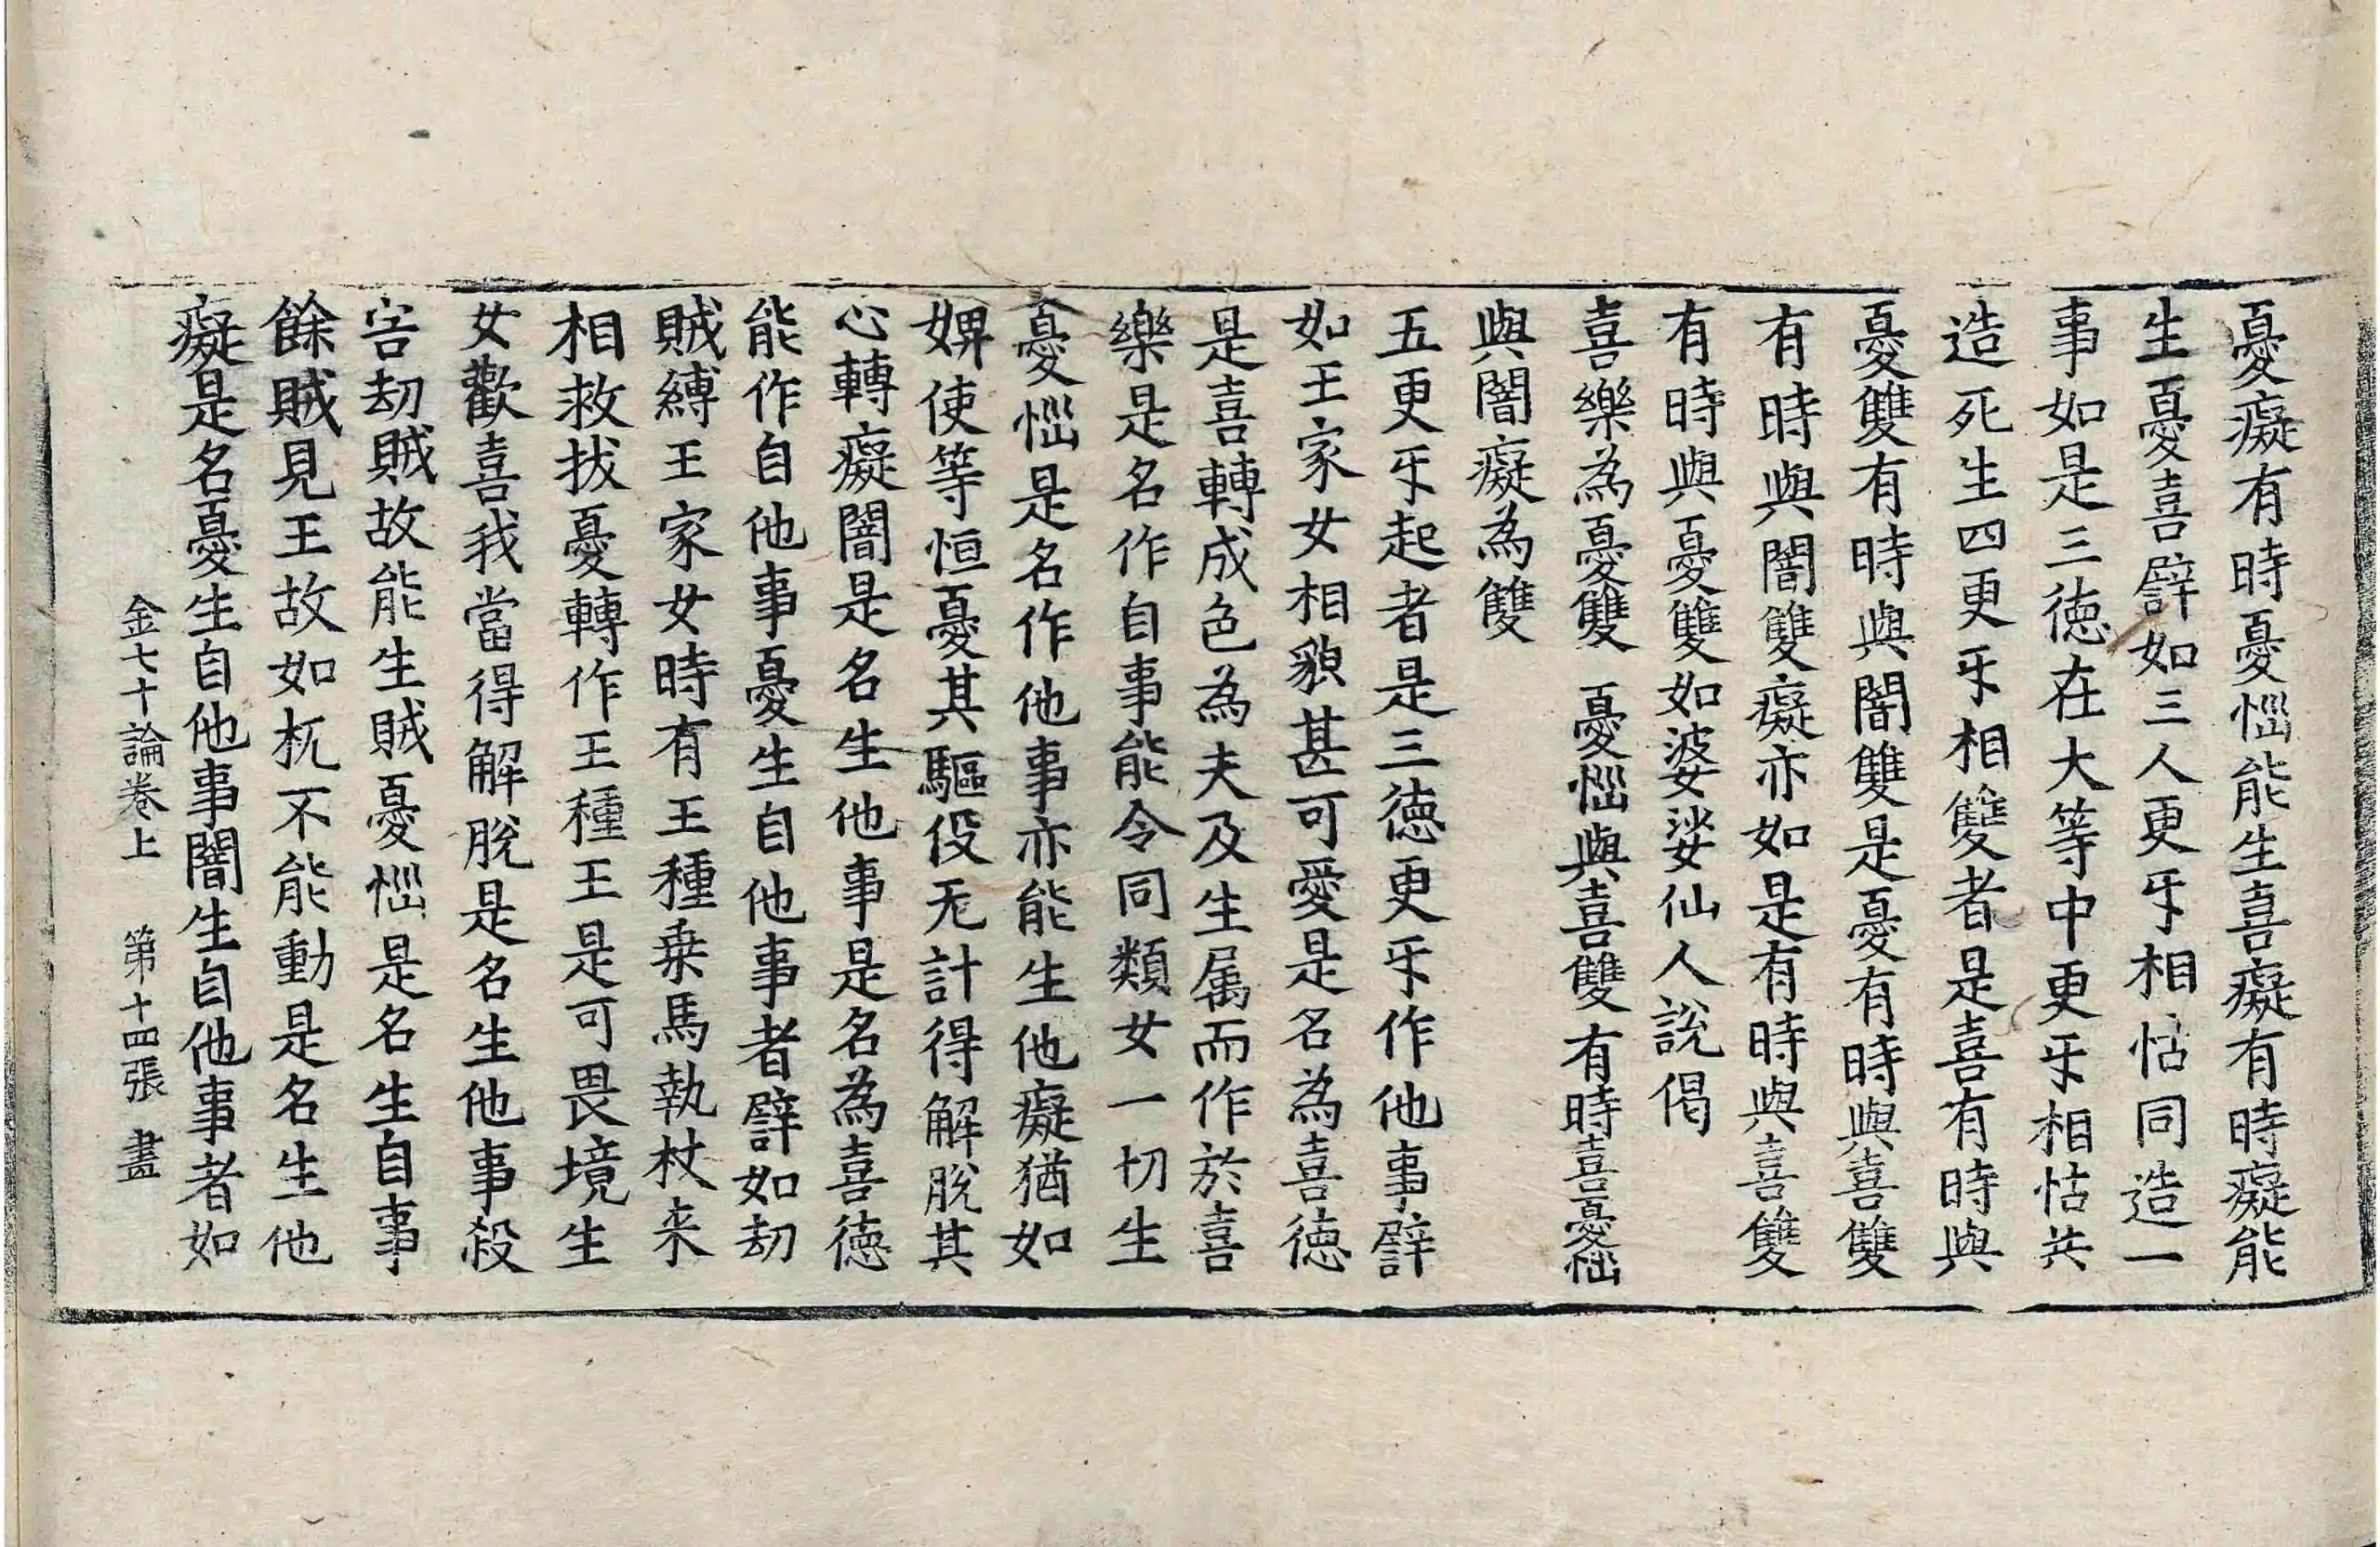 憂癡有時憂惱能生喜癡有時癡能
生憂喜譬如三人更㸦相怙同造一
事如是三徳在大等中更㸦相怙共
造死生四更㸦相雙者是喜有時與
憂雙有時與闇雙是憂有時與喜雙
有時與闇雙癡亦如是有時與喜雙
有時與憂雙如婆娑仙人說偈
喜樂為憂雙 憂惱與喜雙有時喜憂惱
與闇癡為雙
五更㸦起者是三徳更㸦作他事譬
如王家女相貌甚可愛是名為喜徳
是喜轉成色為夫及生属而作於喜
樂是名作自事能令同類女一切生
憂惱是名作他事亦能生他癡猶如
婢使等恒憂其驅役无計得解脫其
心轉癡闇是名生他事是名為喜徳
能作自他事憂生自他事者譬如劫
賊縛王家女時有王種乗馬執杖来
相救拔憂轉作王種王是可畏境生
女歡喜我當得解脫是名生他事殺
害劫賊故能生賊憂惱是名生自事
餘賊見王故如杌不能動是名生他
癡是名憂生自他事闇生自他事者如
金七十論卷上 第十四張 盡